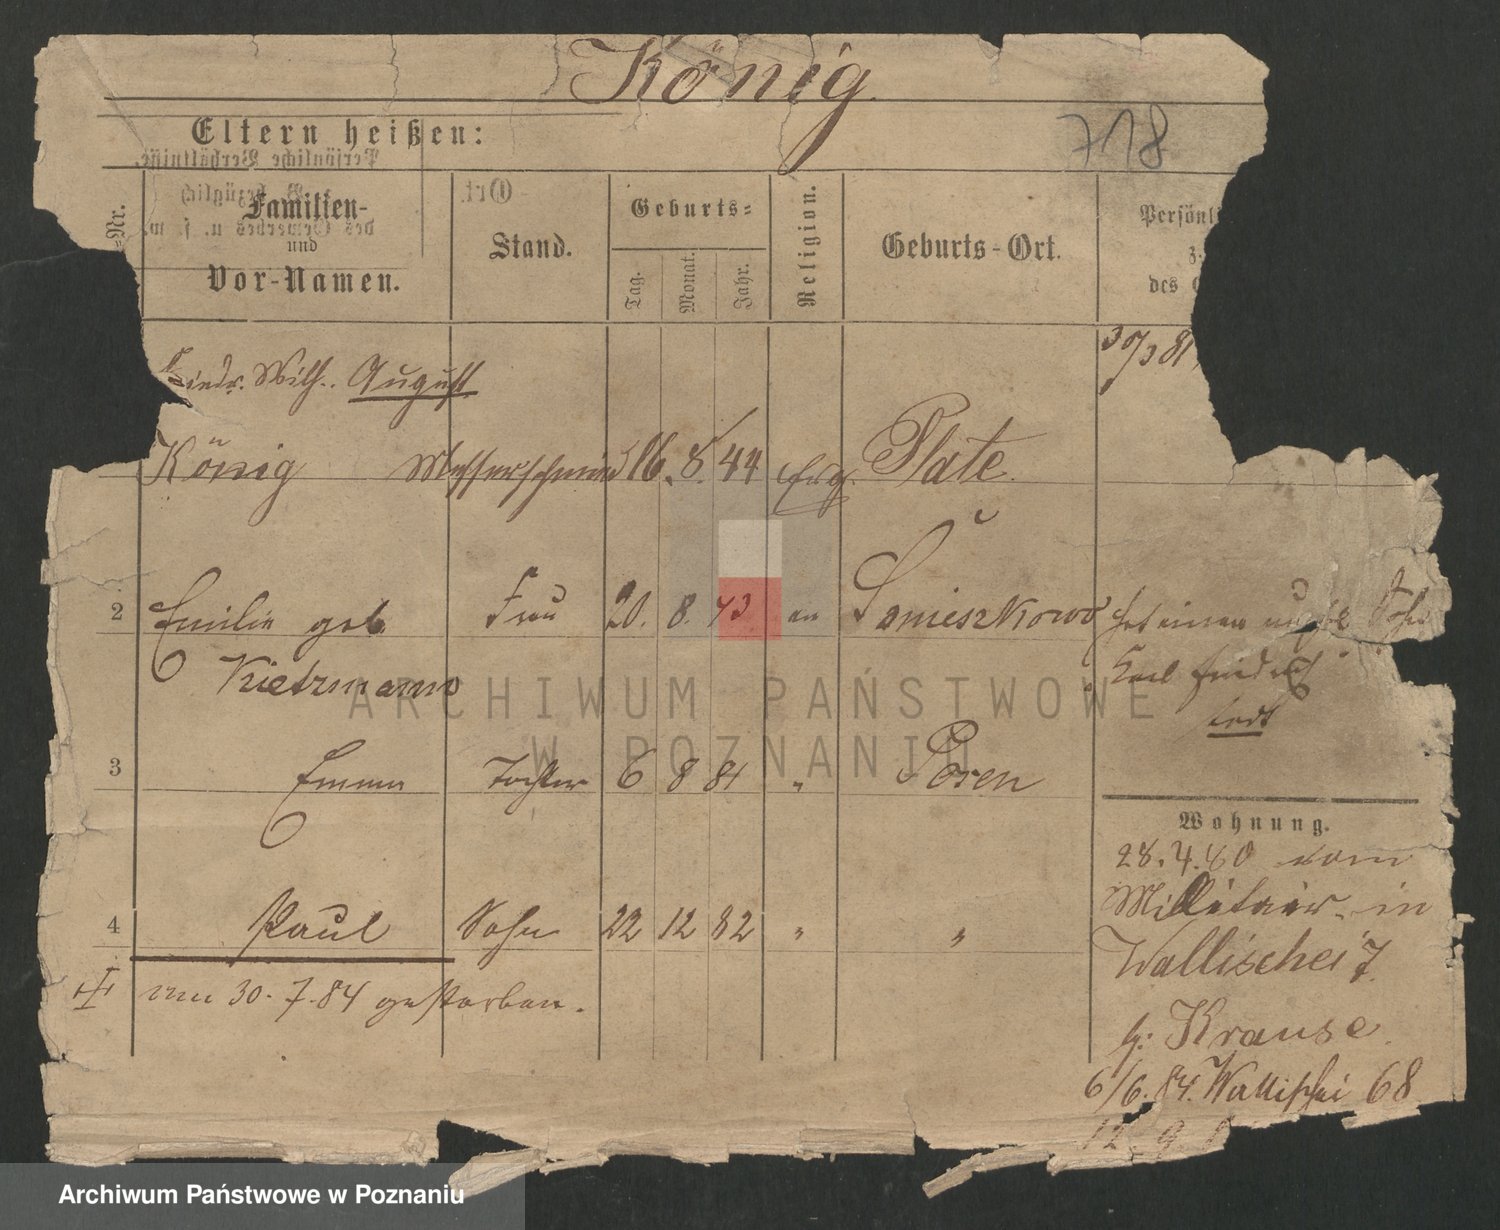 König
718
Eltern heißen:
Persönliche Verhältnisse,
bezüglich
des Gewerbes u. s. w.
Ort.
-Nr.
Familien-
und
Vor-Namen.
Stand.
Geburts-
Tag.
Monat.
Jahr.
Religion.
Geburts-Ort.
Persönl
z.
des G
30/3 81
Friedr. Wilh. August
König Messerschmied 16. 8 44 evg. Plate
2 Emilie geb Frau 20. 8. 43 ev Santieszkowo
Kietzmann
hat einen unehl Sohn
Karl Friedrich
todt
3 Emma Tochter 6 8 81 " Posen
Wohnung.
28.4.80 vom
Militair in
4 Paul Sohn 22 12 82 " "
Wallischei 7
am 30.7.84 gestorben.
b: Krause
6/6.84. Wallischei 68
12. 9
ARCHIWUM PAŃSTWOWE
W POZNANIU
Archiwum Państwowe w Poznaniu